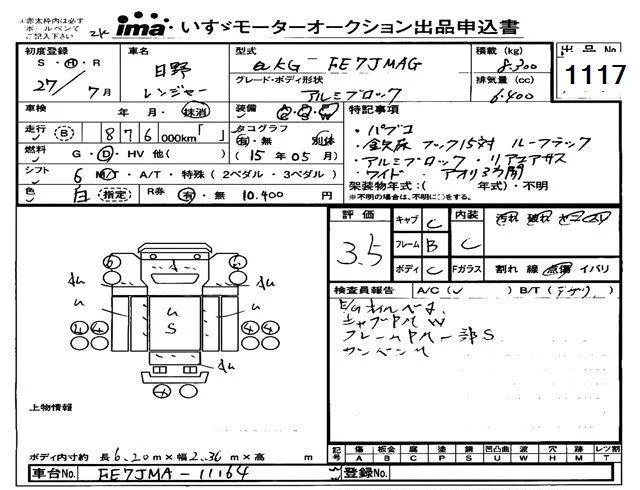 ※赤太枠内は必ずボールペンでご記入下さい
ima いすゞモーターオークション出品申込書
初度登録 車名 型式 積載 (kg) 出品No
S・H・R 日野 QKG-FE7JMAG 8.300
27/7月 レンジャー グレード・ボディ形状 排気量 (cc) 1117
アルミブロック 6.400
車検 年・月・抹消 装備 特記事項
走行 (B) 876000km「 」 タコグラフ 有・無 別体 ・パブコ
燃料 G・D・HV 他( ) (15年05月) ・鉄床 フック15対 ルーフラック
シフト 6 M/T・A/T・特殊(2ペダル・3ペダル) ・アルミブロック・リアエアサス
色 白 (指定) R券 有・無 10.400円 ・ワイド・アオリ3方開
架装物年式:( 年式)・不明
※不明の場合は、不明に○をする。
評価 3.5 キャブ C 内装 C 汚れ 破れ
フレーム B
ボディ C Fガラス 割れ 線 点傷 イバリ
検査員報告 A/C(✓) B/T(デザリ)
E/Gオイルベース
キャブPM W
フレームPM一部S
サンベンU
上物情報
ボディ内寸約 長6.20m×幅2.36m×高 m
記号 傷 板金 腐 塗 錆 凹凸曲 波 穴 跡 レツ割
A B C P S U W H M T
車台No. FE7JMA-11164 登録No.